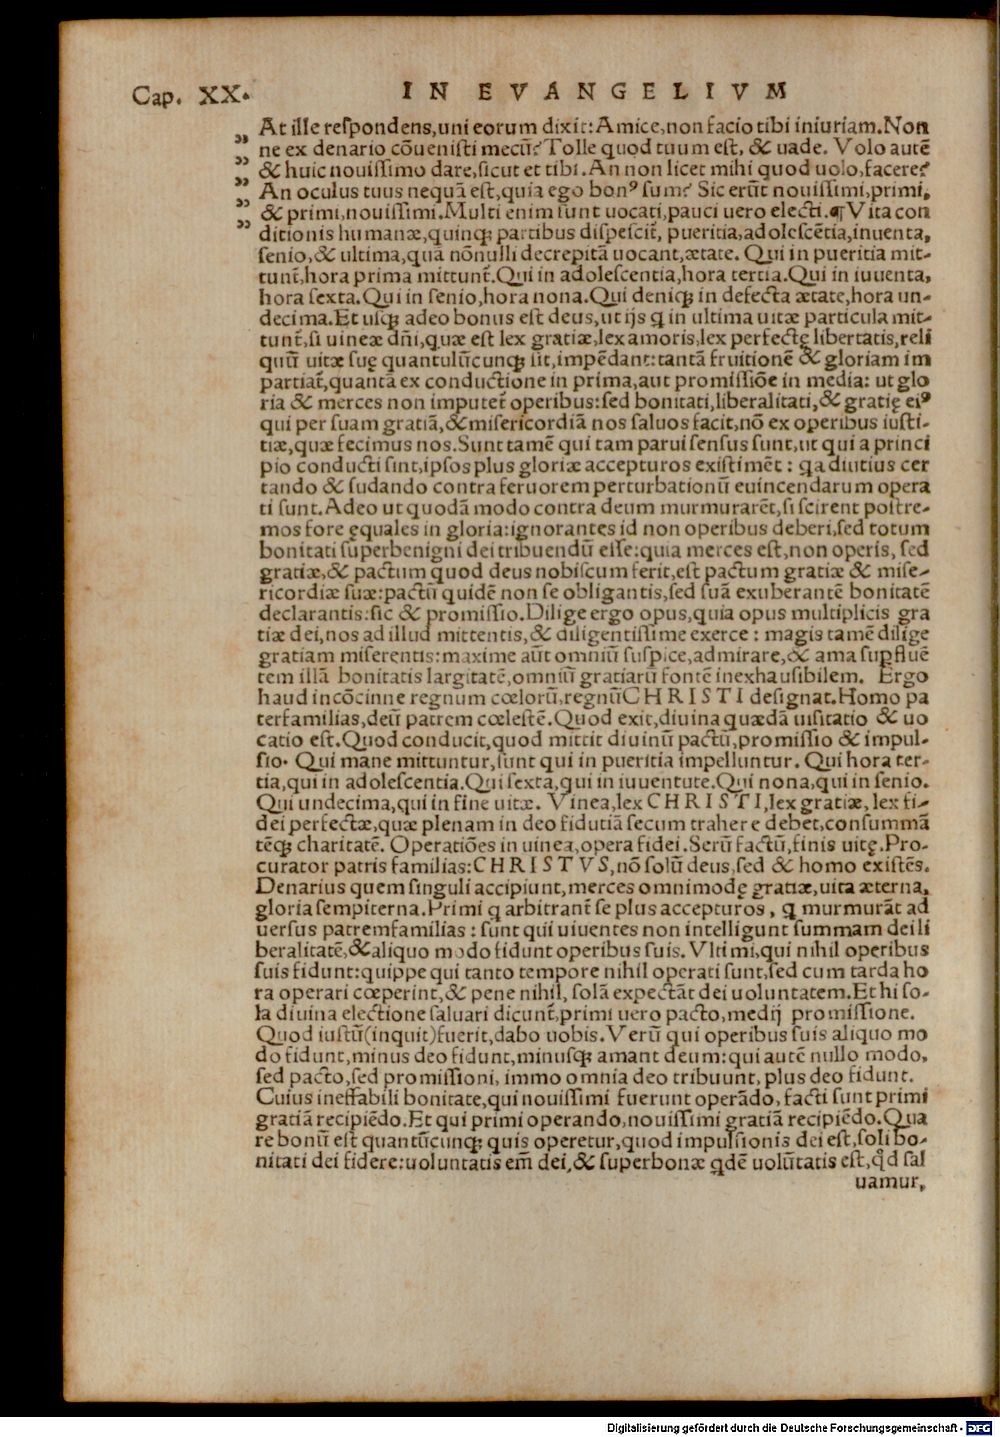 Cap. XX.
IN EVANGELIVM
At ille respondens,uni eorum dixit:Amice,non facio tibi iniuriam.Non
ne ex denario cōuenisti mecū? Tolle quod tuum est, & uade. Volo autē
& huic nouissimo dare,sicut et tibi. An non licet mihi quod uolo,facere?
An oculus tuus nequā est,quia ego bonꝰ sum? Sic erūt nouissimi,primi,
& primi,nouissimi.Multi enim sunt uocati,pauci uero electi.¶Vita con
ditionis humanæ,quinqꝫ partibus dispescit̃, pueritia,adolescētia,iuuenta,
senio,& ultima,quā nōnulli decrepitā uocant,ætate. Qui in pueritia mit-
tunt̃,hora prima mittunt̃.Qui in adolescentia,hora tertia.Qui in iuuenta,
hora sexta.Qui in senio,hora nona.Qui deniqꝫ in defecta ætate,hora un-
decima.Et usqꝫ adeo bonus est deus,ut ijs q̄ in ultima uitæ particula mit-
tunt̃,si uineæ dñi,quæ est lex gratiæ,lex amoris,lex perfectę libertatis,reli
quū uitæ suę quantulūcunqꝫ sit,impēdant:tantā fruitionē & gloriam im
partiat̃,quantā ex conductione in prima,aut promissiōe in media: ut glo
ria & merces non imputet̃ operibus:sed bonitati,liberalitati,& gratię eiꝰ
qui per suam gratiā,& misericordiā nos saluos facit,nō ex operibus iusti-
tiæ,quæ fecimus nos.Sunt tamē qui tam parui sensus sunt,ut qui a princi
pio conducti sint,ipsos plus gloriæ accepturos existimēt : qa diutius cer
tando & sudando contra feruorem perturbationū euincendarum opera
ti sunt.Adeo ut quodā modo contra deum murmurarēt,si scirent postre-
mos fore ęquales in gloria:ignorantes id non operibus deberi,sed totum
bonitati superbenigni dei tribuendū esse:quia merces est,non operis, sed
gratiæ,& pactum quod deus nobiscum ferit,est pactum gratiæ & mise-
ricordiæ suæ:pactū quidē non se obligantis,sed suā exuberantē bonitatē
declarantis:sic & promissio.Dilige ergo opus,quia opus multiplicis gra
tiæ dei,nos ad illud mittentis,& diligentissime exerce : magis tamē dilige
gratiam miserentis:maxime aūt omniū suspice,admirare,& ama supfluē
tem illā bonitatis largitatē,omniū gratiarū fontē inexhausibilem. Ergo
haud incōcinne regnum cœlorū,regnū CHRISTI designat.Homo pa
terfamilias,deū patrem cœlestē.Quod exit,diuina quædā uisitatio & uo
catio est.Quod conducit,quod mittit diuinū pactū,promissio & impul-
sio. Qui mane mittuntur,sunt qui in pueritia impelluntur. Qui hora ter-
tia,qui in adolescentia.Qui sexta,qui in iuuentute.Qui nona,qui in senio.
Qui undecima,qui in fine uitæ. Vinea,lex CHRISTI,lex gratiæ, lex fi-
dei perfectæ,quæ plenam in deo fidutiā secum trahere debet,consummā
tēqꝫ charitatē. Operatiōes in uinea,opera fidei.Serū factū,finis uitę.Pro-
curator patris familias:CHRISTVS,nō solū deus,sed & homo existēs.
Denarius quem singuli accipiunt,merces omnimodę gratiæ,uita æterna,
gloria sempiterna.Primi q̄ arbitrant̃ se plus accepturos, q̄ murmurāt ad
uersus patremfamilias : sunt qui uiuentes non intelligunt summam dei li
beralitatē,& aliquo modo fidunt operibus suis. Vltimi,qui nihil operibus
suis fidunt:quippe qui tanto tempore nihil operati sunt,sed cum tarda ho
ra operari cœperint,& pene nihil, solā expectāt dei uoluntatem.Et hi so-
la diuina electione saluari dicunt̃,primi uero pacto,medij promissione.
Quod iustū(inquit)fuerit,dabo uobis.Verū qui operibus suis aliquo mo
do fidunt,minus deo fidunt,minusqꝫ amant deum:qui autē nullo modo,
sed pacto,sed promissioni, immo omnia deo tribuunt, plus deo fidunt.
Cuius ineffabili bonitate,qui nouissimi fuerunt operādo, facti sunt primi
gratiā recipiēdo.Et qui primi operando,nouissimi gratiā recipiēdo.Qua
re bonū est quantūcunqꝫ quis operetur,quod impulsionis dei est,soli bo-
nitati dei fidere:uoluntatis em̄ dei,& superbonæ qdē uolūtatis est,qd sal
uamur,
Digitalisierung gefördert durch die Deutsche Forschungsgemeinschaft - DFG